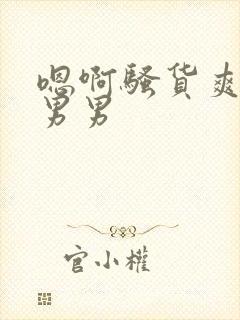 嗯啊骚货爽
男男
官小權